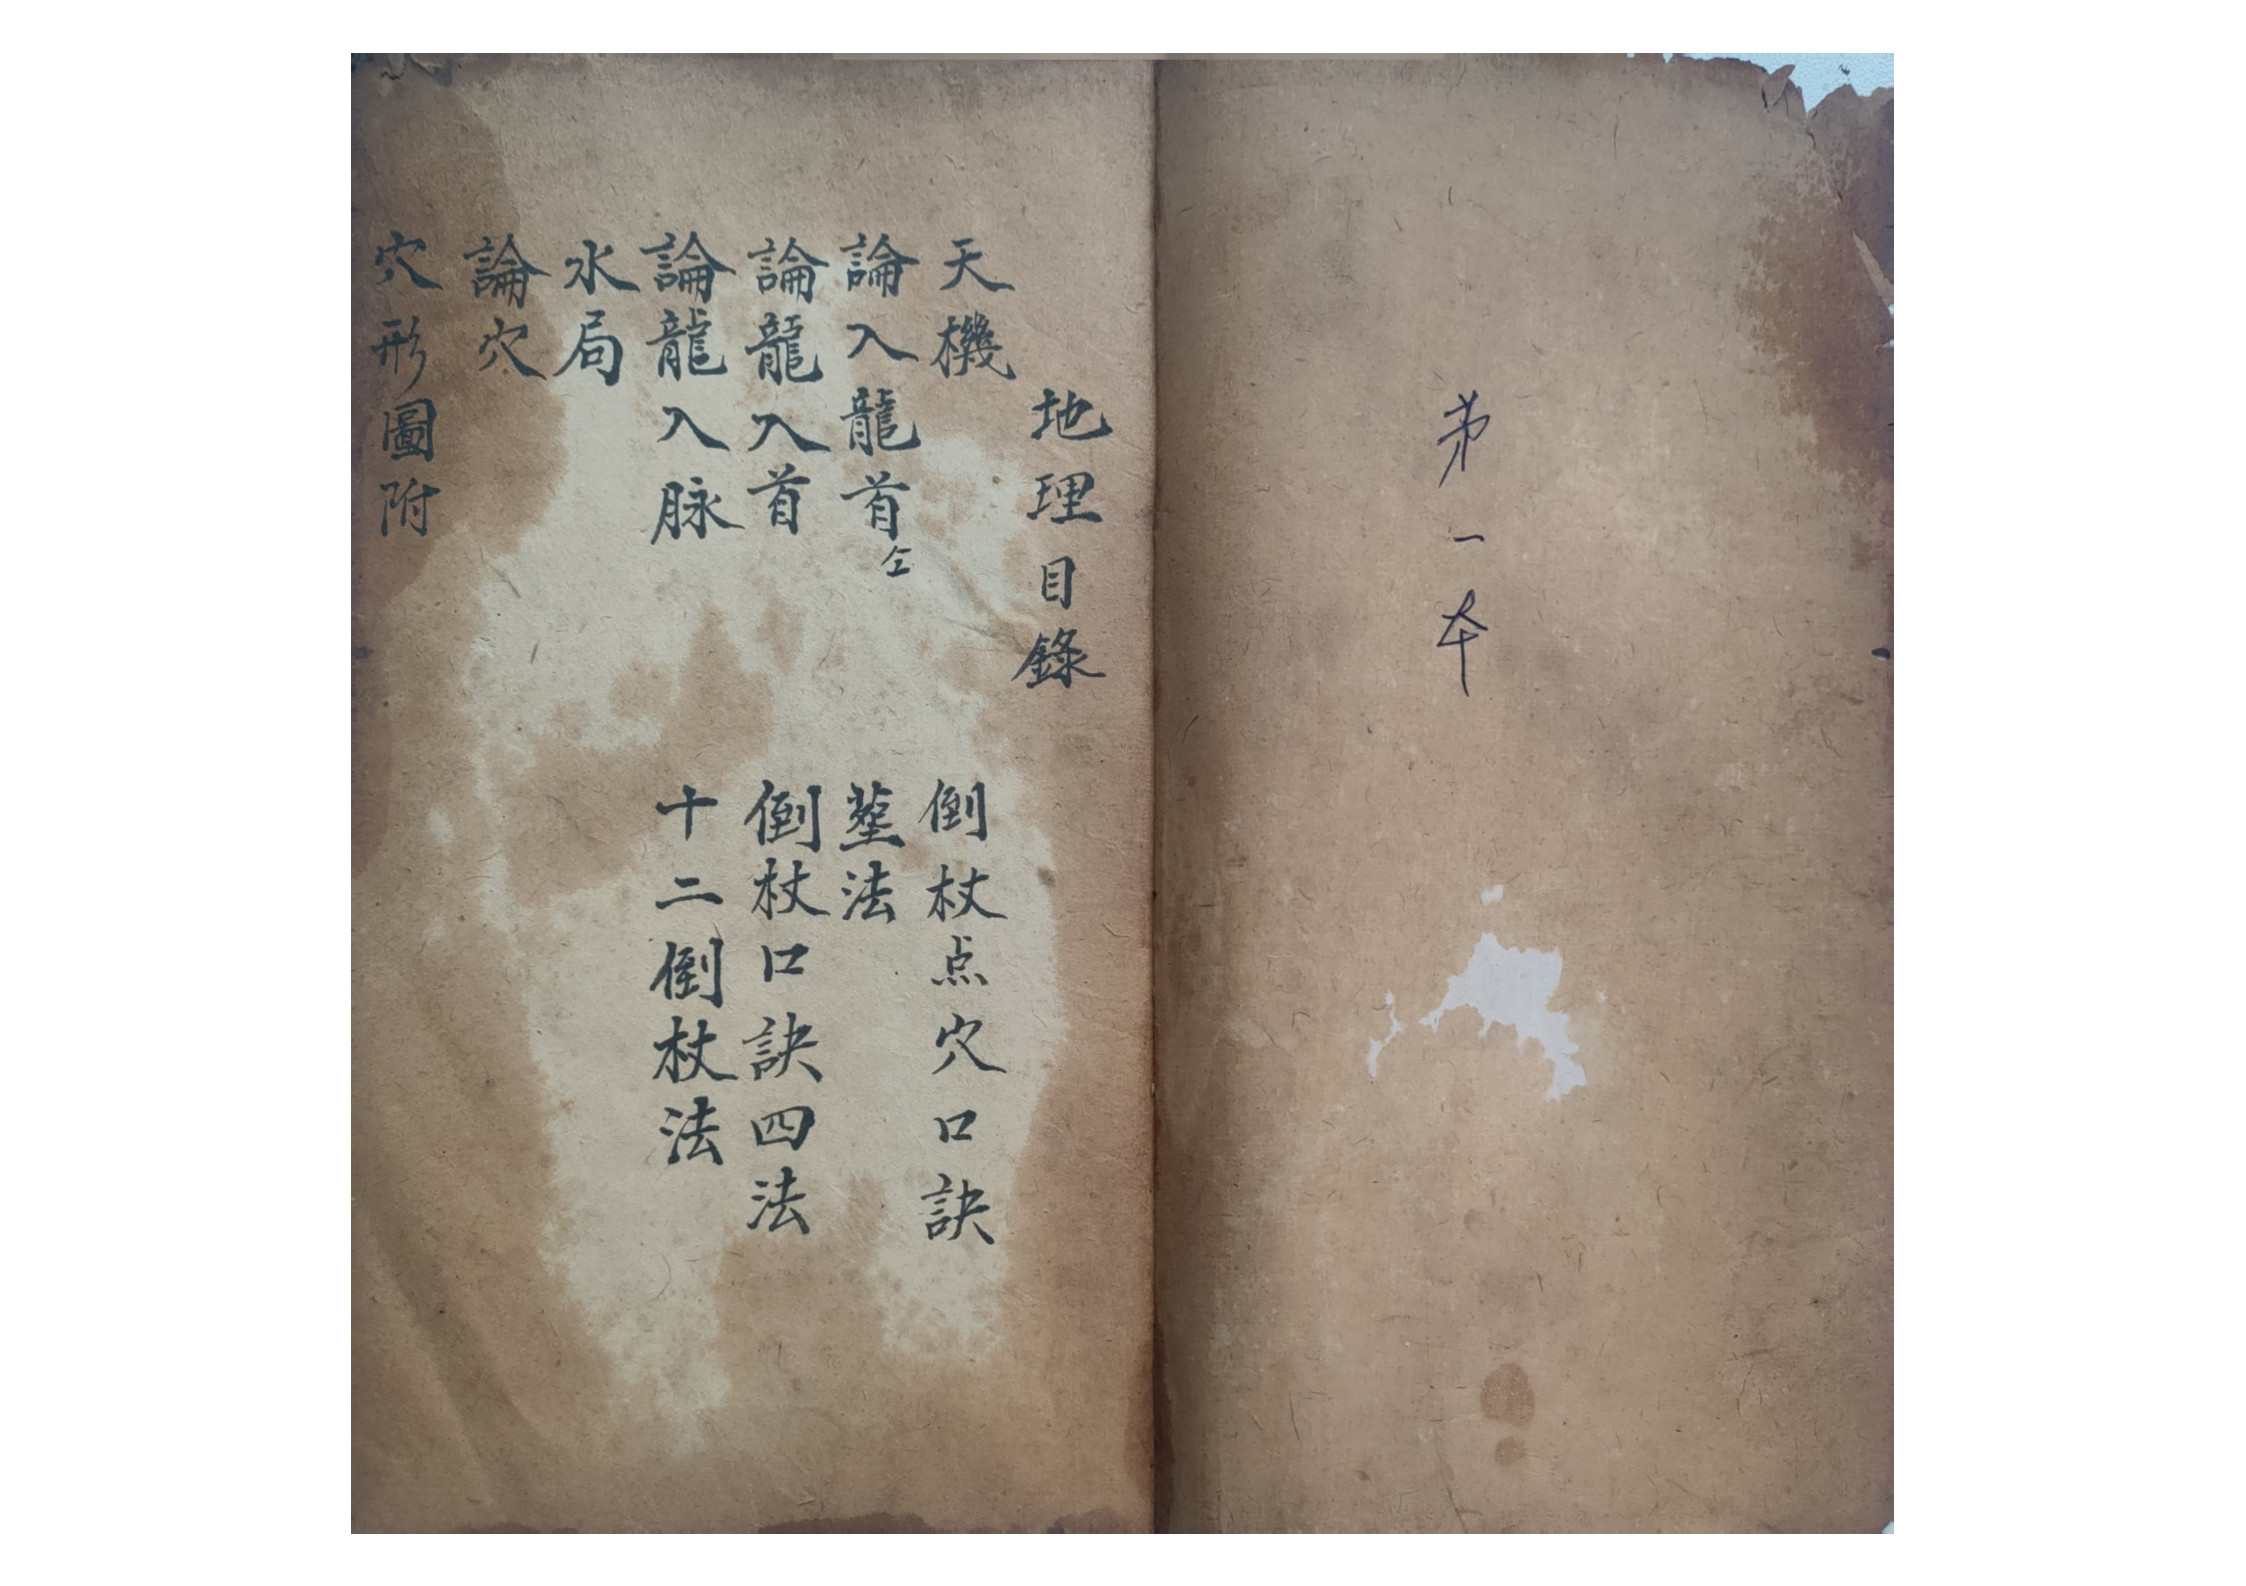 第一本
地理目錄
天機
論入龍首仝
論龍入首
論龍入脉
水局
論穴
穴形圖附
倒杖点穴口訣
塟法
倒杖口訣四法
十二倒杖法